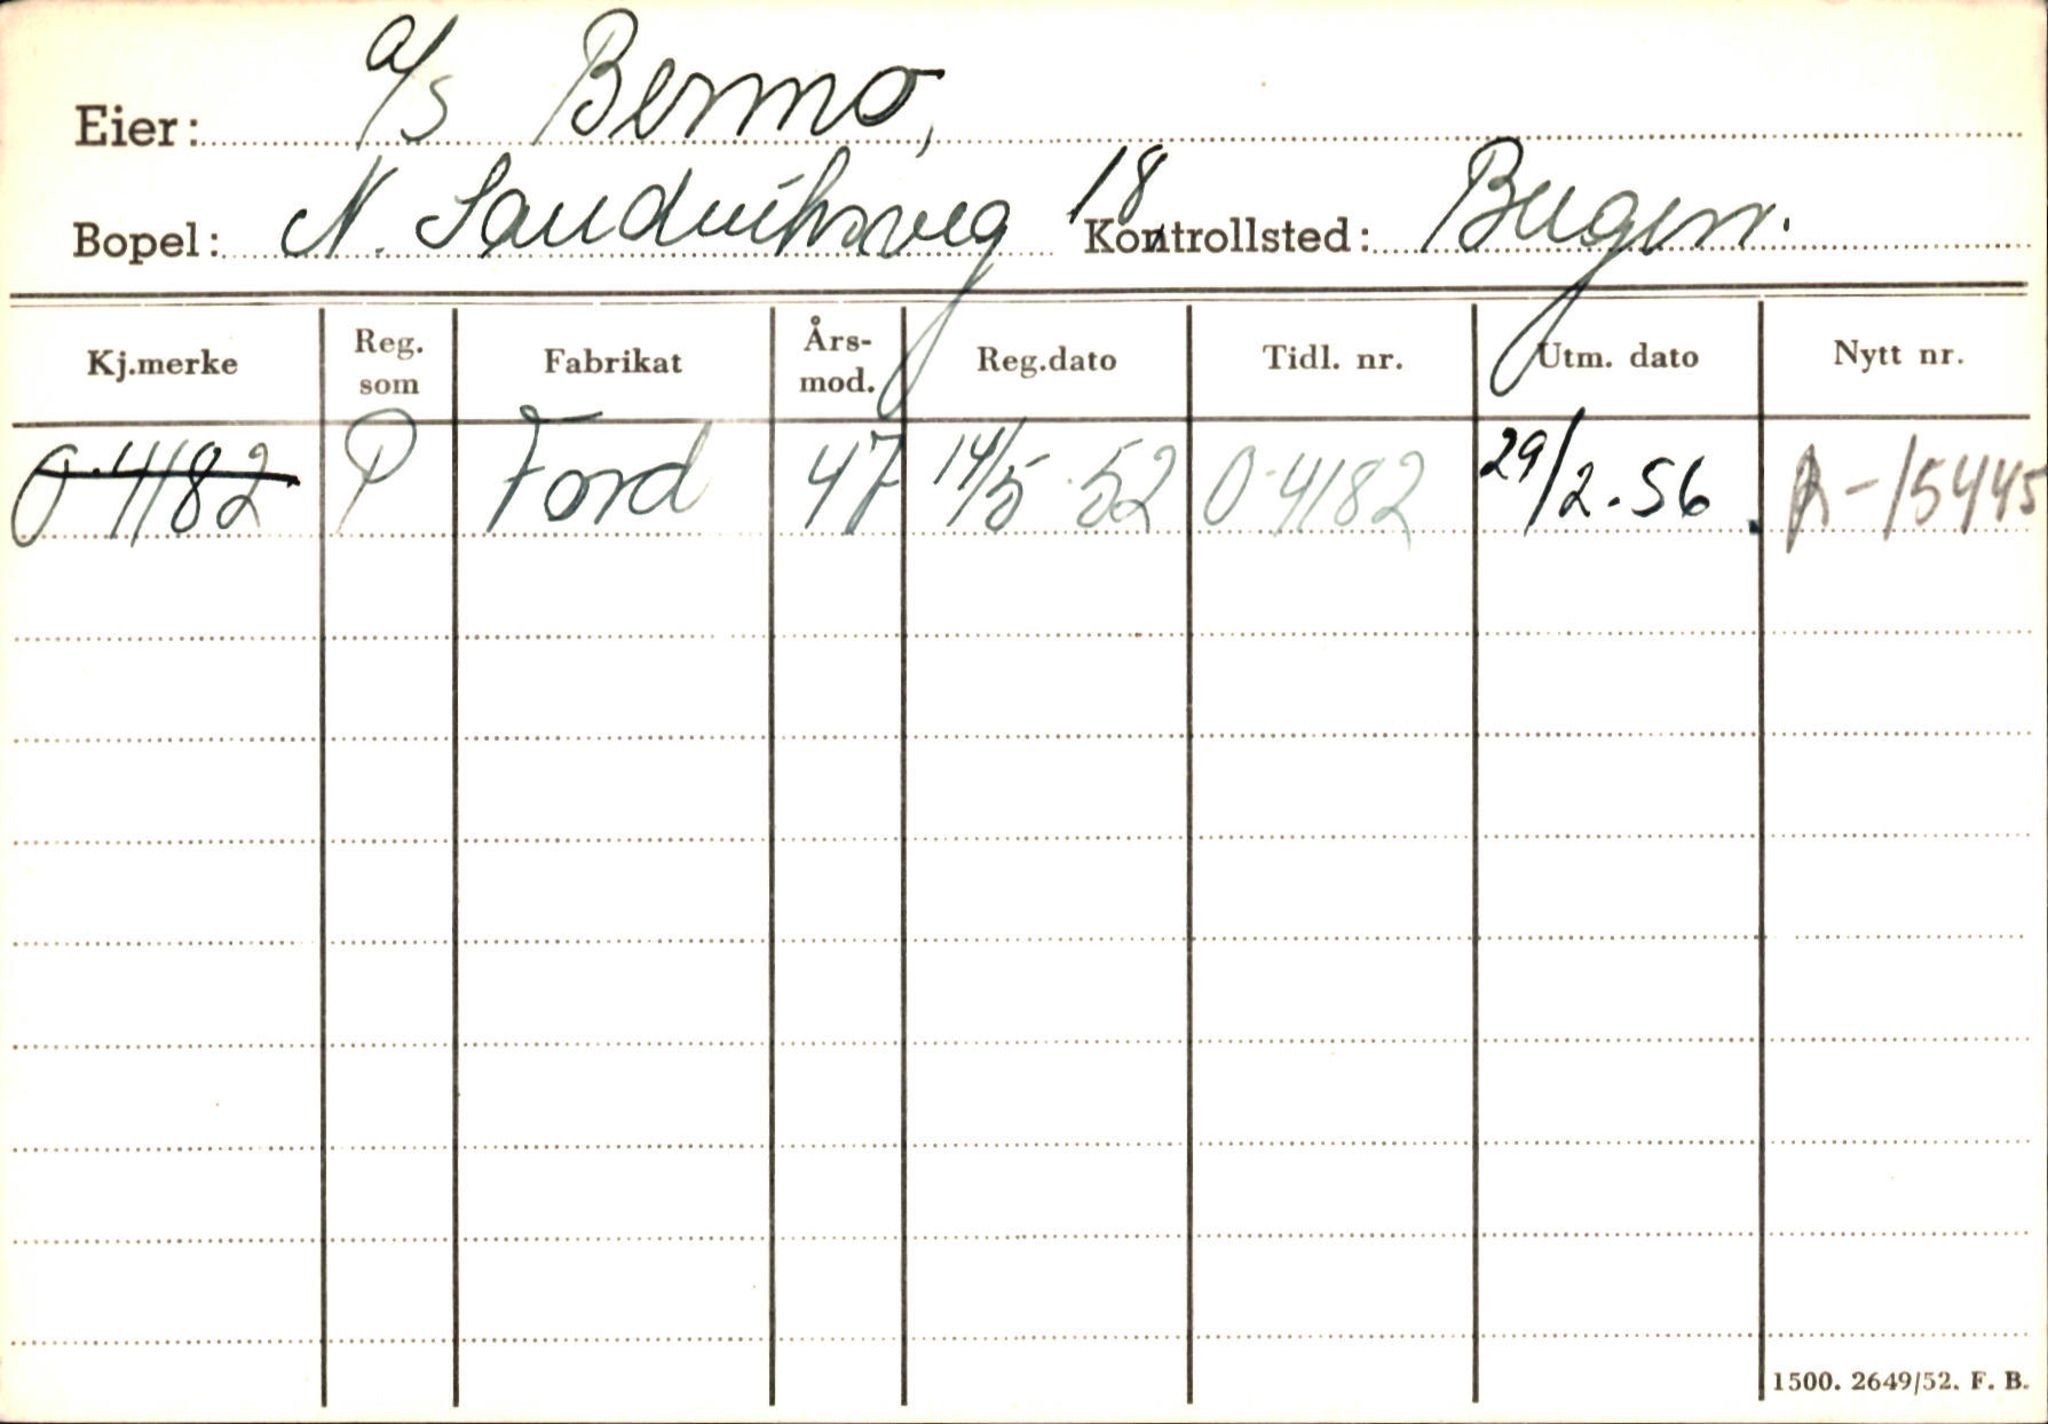 Eier: a/s Bermo,
Bopel: N. Sandviksveg 18 Kontrollsted: Bergen.
Kj.merke Reg. som Fabrikat Års-mod. Reg.dato Tidl. nr. Utm. dato Nytt nr.
O-4182 P Ford 47 14/5 52 O-4182 29/2-56 R-15445
1500. 2649/52. F. B.